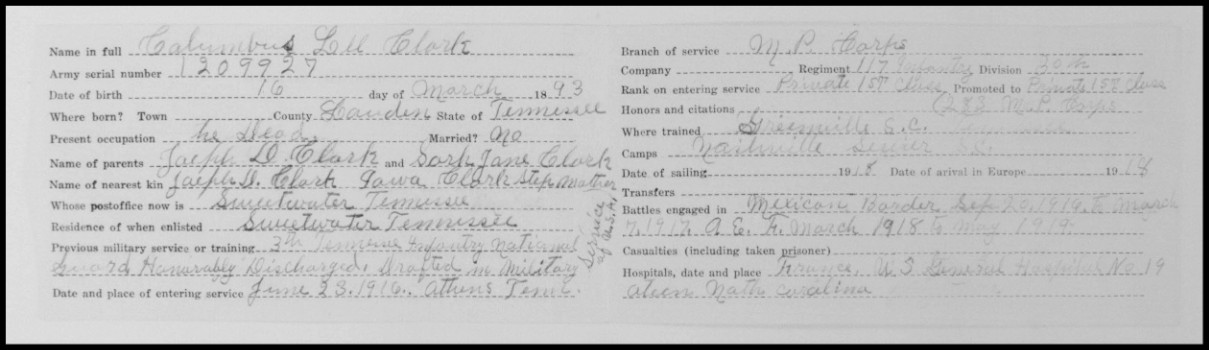 Name in full Columbus Lee Clark
Army serial number 1209927
Date of birth 16 day of March 1893
Where born? Town County Louden State of Tennessee
Present occupation he Dead Married? No
Name of parents Joseph D. Clark and Sarh Jane Clark
Name of nearest kin Joseph D. Clark Iowa Clark Step Mother
Whose postoffice now is Sweetwater Tennessee
Residence of when enlisted Sweetwater Tennessee
Previous military service or training 3th Tennessee Infantry National
Guard Honorably Discharged. Drafted in Military
Service of U.S.A.
Date and place of entering service June 23. 1916. Athens Tenn.
Branch of service M. P. Corps
Company Regiment 117 Infantry Division 30th
Rank on entering service Private 1st Class Promoted to Private 1st Class
Honors and citations M.P. Corps
Where trained Greenville S.C.
Camps Nashville Sevier S.C.
Date of sailing 1918 Date of arival in Europe 1918
Transfers
Battles engaged in Mexican Border Sep. 20, 1916. to March
7, 1917. A. E. F. March 1918 to May 1919.
Casualties (including taken prisoner)
Hospitals, date and place France. U.S General Hospital No 19
North Carolina